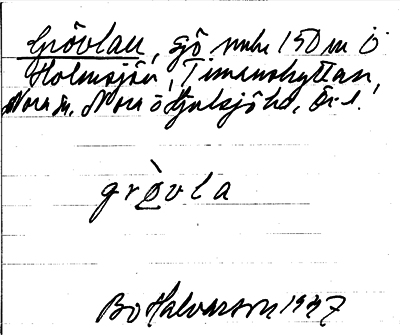 Grövlan, sjö mitt 150 m Ö
Holmsjön, Timanshyttan,
Nora sn. Nora o Hjulsjö bd, Ör. l.
gròvla
Bo Halvarson 1947